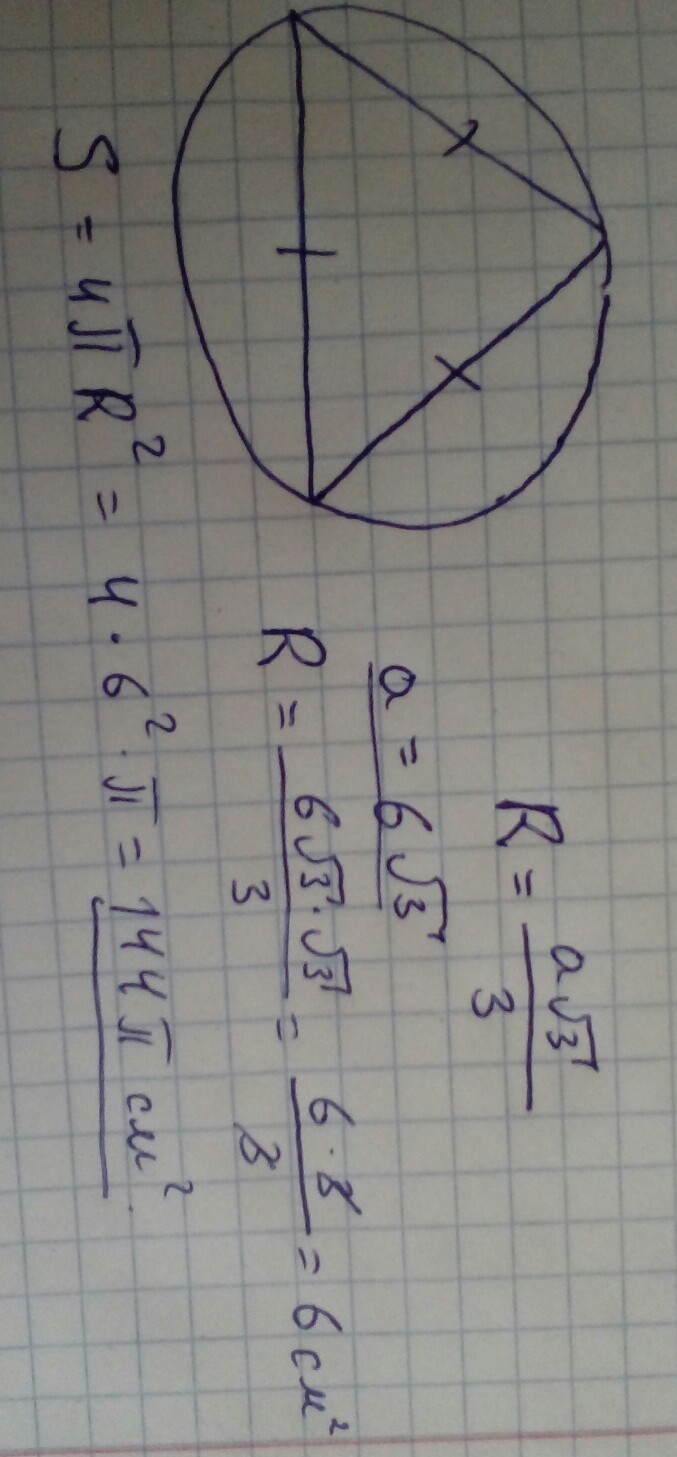 R = a√3 / 3
a = 6√3
R = 6√3 · √3 / 3 = 6 · 3 / 3 = 6 см²
S = 4πR² = 4 · 6² · π = 144π см²